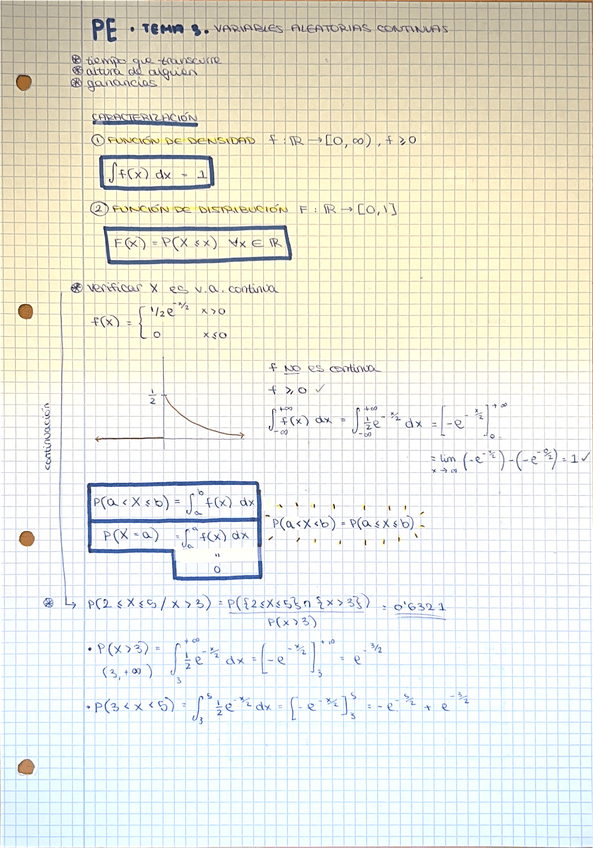 PE · TEMA 3. VARIABLES ALEATORIAS CONTINUAS
⊛ tiempo que transcurre
⊛ altura de alguien
⊛ ganancias
CARACTERIZACIÓN
① FUNCIÓN DE DENSIDAD f: ℝ → [0, ∞), f ≥ 0
∫f(x) dx = 1
② FUNCIÓN DE DISTRIBUCIÓN F: ℝ → [0,1]
F(x) = P(X ≤ x) ∀x ∈ ℝ
⊛ verificar X es v.a. continua
f(x) = { 1/2 e^{-x/2} x>0
0 x≤0
f NO es continua
f ≥ 0 ✓
1/2
∫_{-∞}^{+∞} f(x) dx = ∫_{-∞}^{+∞} 1/2 e^{-x/2} dx = [-e^{-x/2}]_0^{+∞}
= lim_{x→∞} (-e^{-x/2}) - (-e^{-0/2}) = 1 ✓
continuación
P(a < X ≤ b) = ∫_a^b f(x) dx
P(X = a) = ∫_a^a f(x) dx
"
0
P(a<X<b) = P(a≤X≤b)
⊛ → P(2 ≤ X ≤ 5 / X > 3) = P({2≤X≤5} ∩ {X>3}) / P(X>3) = 0'6321
· P(X>3) = ∫_3^{+∞} 1/2 e^{-x/2} dx = [-e^{-x/2}]_3^{+∞} = e^{-3/2}
(3, +∞)
· P(3 < X < 5) = ∫_3^5 1/2 e^{-x/2} dx = [-e^{-x/2}]_3^5 = -e^{-5/2} + e^{-3/2}